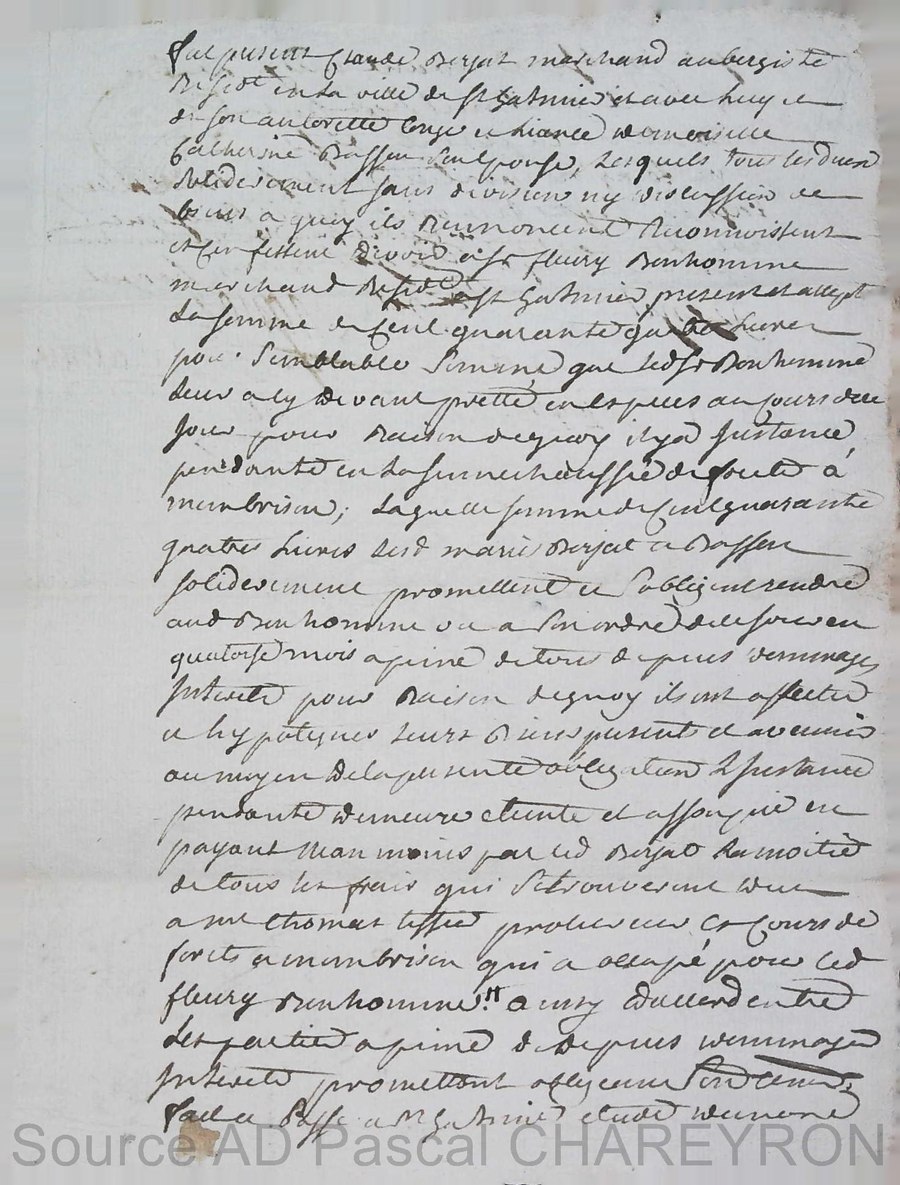 fut present Claude Berjat marchand aubergiste
Residt en la ville de st Galmier et avec luy et
de son autorette Conge et liance demoiselle
Catherine Basson son epouse, Lesquels tous les deux
solidairement sans division ny discussion de
biens a quoy ils Renoncent Reconnoissent
et Confessent devoir a sr fleury Bonhomme
marchand Residt a st Galmier present et accept
La somme de Cent quarante quatre Livres
pour Semblable Somme que Ledsr Bonhomme
Leur a cy devant pretté en especes au Cours de ce
Jour pour Raison de quoy il y a Instance
pendante en La sennechaussée de forets a
monbrison; Laquelle somme de Cent quarante
quatre Livres Lesd mariés Berjat et Basson
solidairement promettent et sobligent rendre
aud Bonhomme ou a son ordre de ce jour en
quatorse mois a peine de tous depens dommages
Interets pour Raison de quoy ils ont affecté
et hypoteques Leurs Biens presents et avenir
au moyen de la presente obligation L Instance
pendante demeure eteinte et assoupie en
payant Neanmoins par Led Berjat La moitié
de tous Les frais qui se trouveront deus
a me thomas tissier procureur es Cours de
forets a monbrison qui a occupé pour Led
fleury Bonhomme. ainsy d'accord entre
Les parties a peine de depens dommages
Interets promettant obligeant
fait et Passé a st Galmier etude
Source AD Pascal CHAREYRON